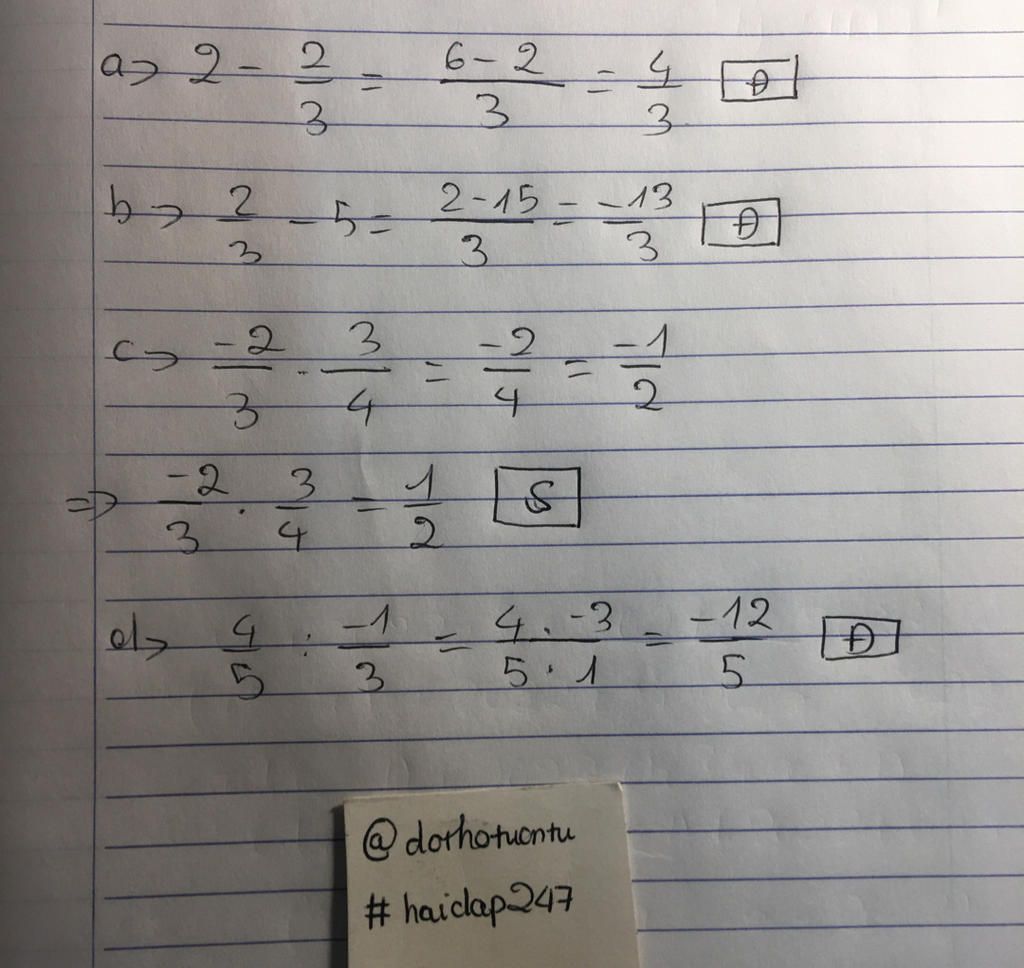 a> 2 - 2/3 = (6 - 2)/3 = 4/3 Đ
b> 2/3 - 5 = (2 - 15)/3 = -13/3 Đ
c> -2/3 . 3/4 = -2/4 = -1/2
=> -2/3 . 3/4 = 1/2 S
d> 4/5 : -1/3 = (4 . -3)/(5 . 1) = -12/5 Đ
@dothotuontu
# haidap247